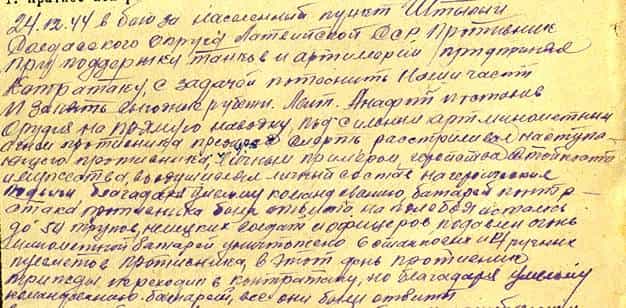 24.12.44 в бою за населенный пункт Штыбыи
Округа Латвийской ССР противник
При поддержку танков и артиллерии предпринял
Контратаку, с задачей потеснить Наши части
И Занять выгодные рубежи. Лейт.
Орудия на прямую наводку под сильным артминометным
огнем противника презирая смерть расстреливал наступа-
ющего противника. Личным примером, геройства стойкости
и мужества, воодушевлял личный состав на героические
подвиги благодаря умелому командованию, батареей контр-
атака противника была отбита на поле боя осталось
до 50 трупов, немецких солдат и офицеров подавлен огонь
минометной батареи уничтожено 6 станковых и ручных
пулеметов противника, в этот день противник
трижды переходил в контратаку, но благодаря умелому
командованию батареей, все они были отбиты